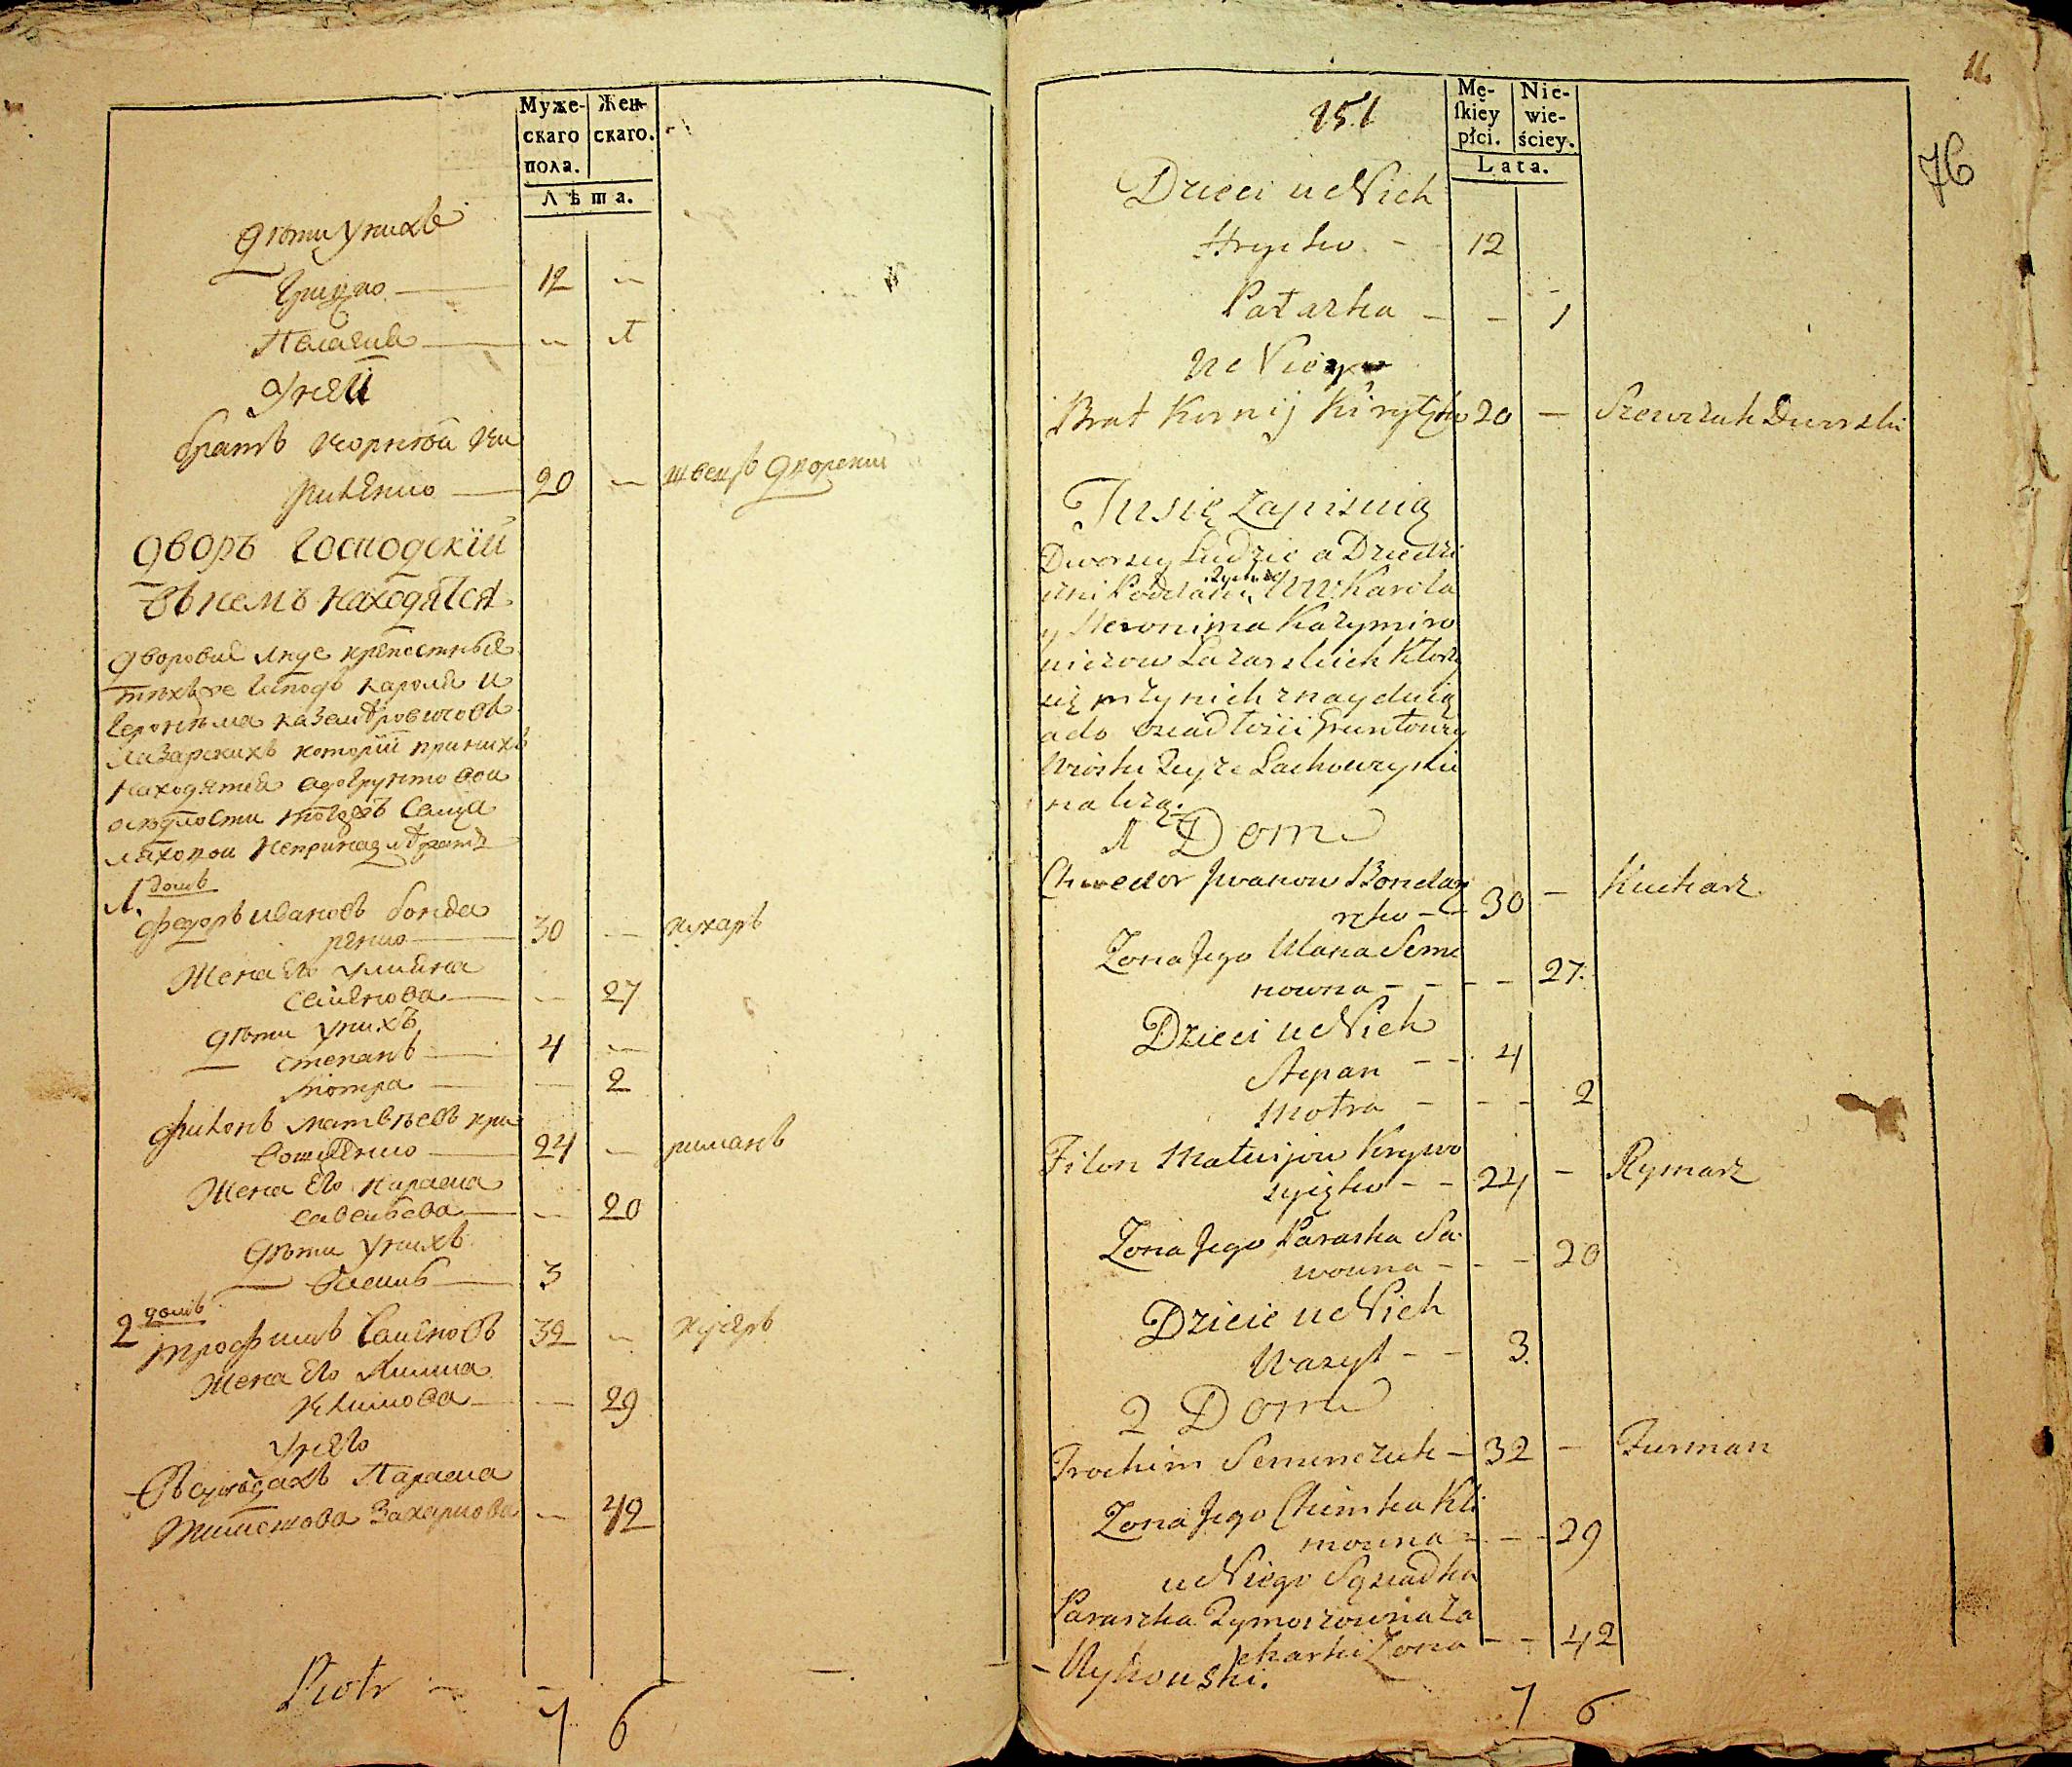 Муже-
скаго
пола.
Жен-
скаго.
Лѣта.
дѣти у нихъ
Грицко 12 —
Пелагия — 1
У ней
братъ Корнѣй Ки
риленко 20 — швецъ дворский
дворъ господскїй
въ немъ находятся
дворовые люде крѣпостные
тѣхъ же господъ Кароля и
Геронима Казимировичовъ
Лазарскихъ которїи при нихъ
находятся а до грунтовой
оседлости тогожъ села
Ляховой непринадлежатъ
1. домъ
Федоръ Ивановъ бонда
ренко 30 — кухаръ
Жена его Улияна
Семенова — 27
дѣти у нихъ
Степанъ 4 —
Мотра — 2
Филонъ Матвѣевъ кри
вошеенко 24 — римаръ
Жена его Параска
Савельева — 20
дѣти у нихъ
Василь 3
2 домъ
Трофимъ Семеновъ 32 — кучеръ
Жена его Химка
Климова — 29
У него
въ сусѣдахъ Параска
Тимошова Захаркова — 42
Piotr
7 6
11
76
151
Mę-
skiey
płci.
Nie-
wie-
ściey.
Lata.
Dzieci u Nich
Hryćko - 12
Pałazka - - 1
u Niey
Brat Kornij Kiryłęko 20 — Szewczuk Dworski
Tu się zapisuią
Dworscy Ludzie a Dziedzi
czni Poddani tychże WW: Karola
y Heronima Kazymiro
wiczow Lazarskich Ktorzy
się przy nich znayduią
a do osiadłości Gruntowey
Wioski teyże Lachowey nie
należą.
1 Dom
Chwedor Iwanow Bondar
ęko - - 30 — Kucharz
Zona Jego Ulana Seme
nowna - - - - 27.
Dzieci u Nich
Stepan - - 4
Motra - - - 2
Filon Matwijow Krywo
szyięko - - 24 — Rymarz
Zona Jego Paraska Sa
wowna - - - 20
Dzieci u Nich
Wasyl - - 3.
2 Dom
Trochim Semenczuk - 32 — Furman
Zona Jego Chimka Kli
mowna - - - 29
u Niego Sąsiadka
Paraszka Tymoszowna Za
charki Zona - - 42
Wykowski.
7 6